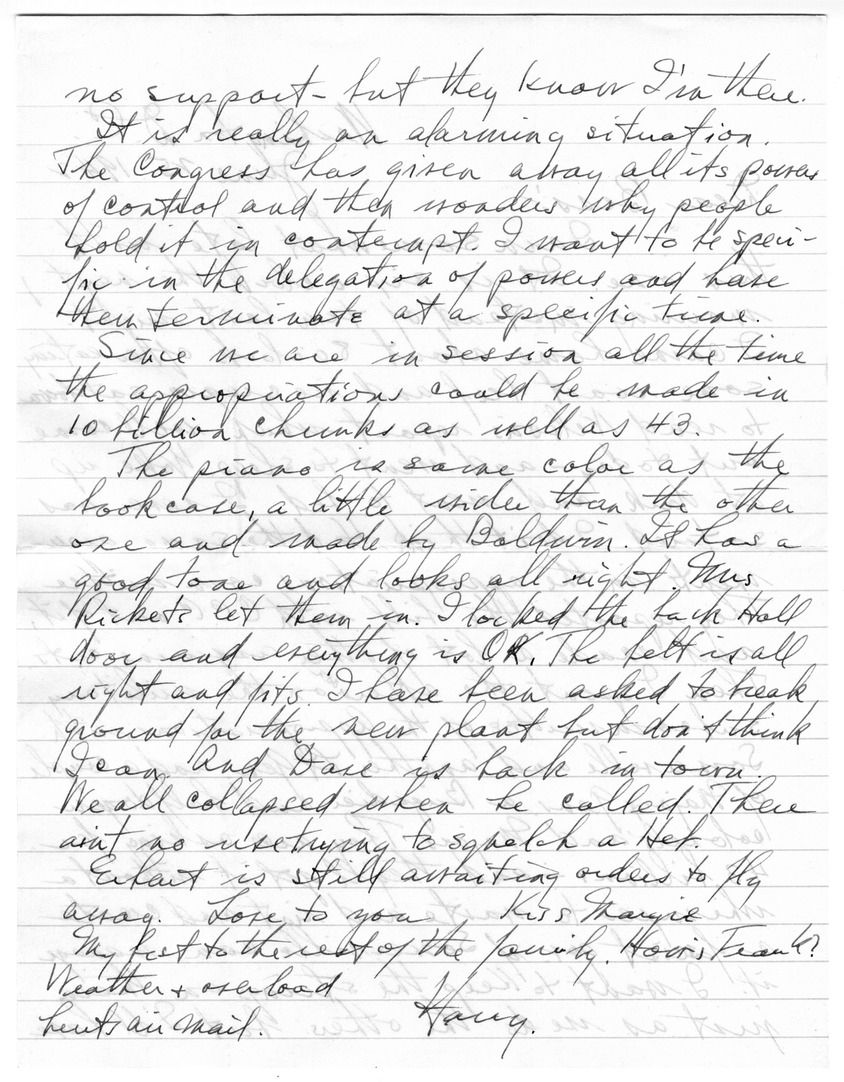 no support - but they know I'm there.
It is really an alarming situation.
The Congress has given away all its powers
of control and then wonders why people
hold it in contempt. I want to be speci-
fic in the delegation of powers and have
them terminate at a specific time.
Since we are in session all the time
the appropriations could be made in
10 billion chunks as well as 43.
The piano is same color as the
bookcase, a little wider than the other
one and made by Baldwin. It has a
good tone and looks all right. Mrs
Rickets let them in. I locked the back Hall
door and everything is OK. The belt is all
right and fits. I have been asked to break
ground for the new plant but don't think
I can. And Dave is back in town.
We all collapsed when he called. There
ain't no use trying to squelch a Heb.
is still awaiting orders to fly
away. Love to you Kiss Margie
My best to the rest of the family. How's Frank?
Weather & overload
hurts air mail. Harry.